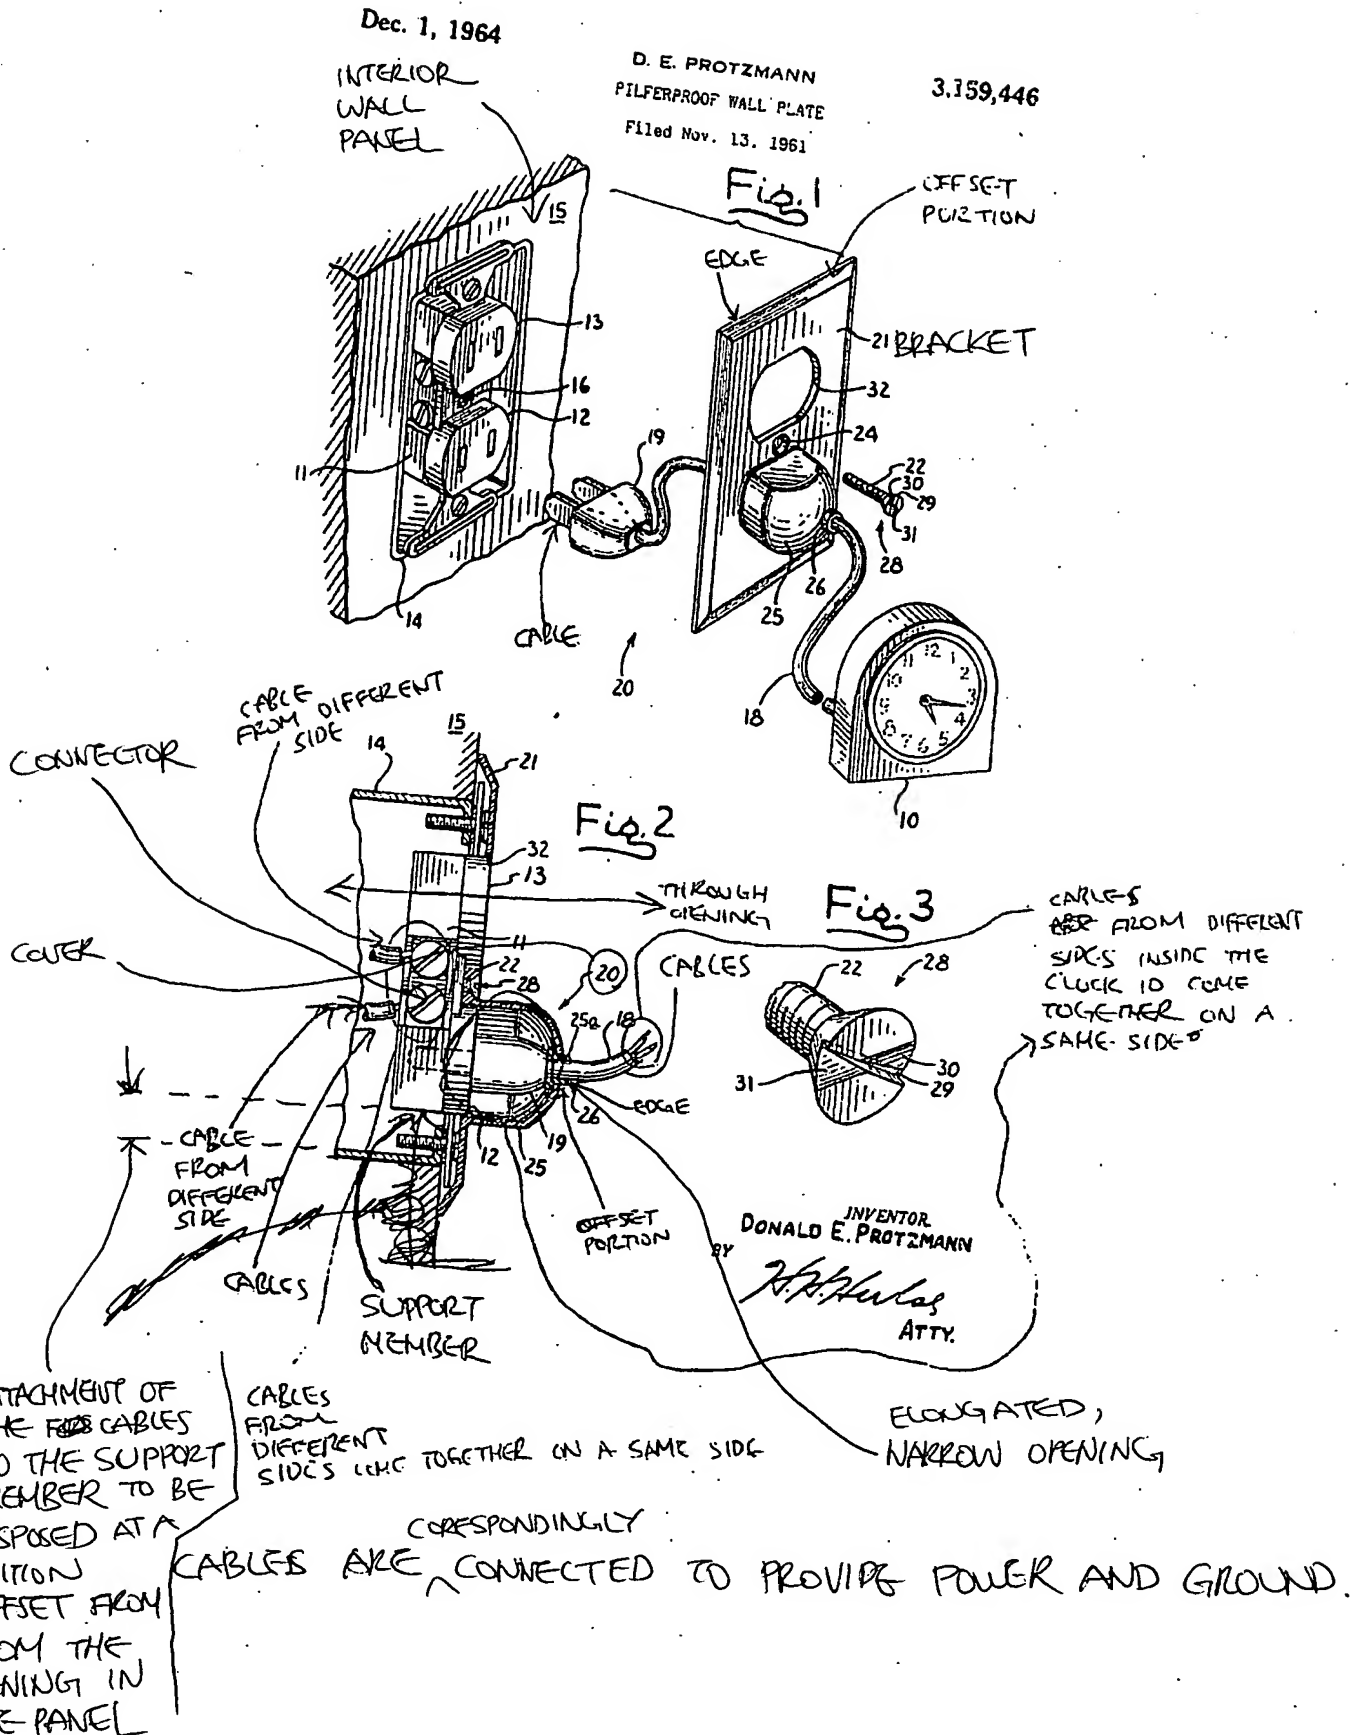 Dec. 1, 1964
D. E. PROTZMANN
PILFERPROOF WALL PLATE
Filed Nov. 13. 1961
3,159,446
INTERIOR
WALL
PANEL
Fig.1
OFFSET
PORTION
EDGE
15
13
21 BRACKET
16
32
12
24
19
22
30
29
11
31
28
26
25
14
CABLE
20
18
12 1 2 3 4 5 6 7 8 9 10 11
10
CABLE
FROM DIFFERENT
SIDE
CONNECTOR
14
15
21
Fig.2
32
13
THROUGH
OPENING
Fig.3
CABLES
FROM DIFFERENT
SIDES INSIDE THE
CLOCK 10 COME
TOGETHER ON A
SAME SIDE
COVER
11
22
28
20
CABLES
25a
18
22
28
30
29
31
EDGE
26
19
12
25
CABLE
FROM
DIFFERENT
SIDE
OFFSET
PORTION
CABLES
SUPPORT
MEMBER
INVENTOR
DONALD E. PROTZMANN
BY
ATTY.
TTACHMENT OF
HE CABLES
O THE SUPPORT
EMBER TO BE
SPOSED AT A
ITION
FSET FROM
OM THE
ENING IN
E PANEL
CABLES
FROM
DIFFERENT
SIDES COME TOGETHER ON A SAME SIDE
ELONGATED,
NARROW OPENING
CORESPONDINGLY
CABLES ARE ^ CONNECTED TO PROVIDE POWER AND GROUND.